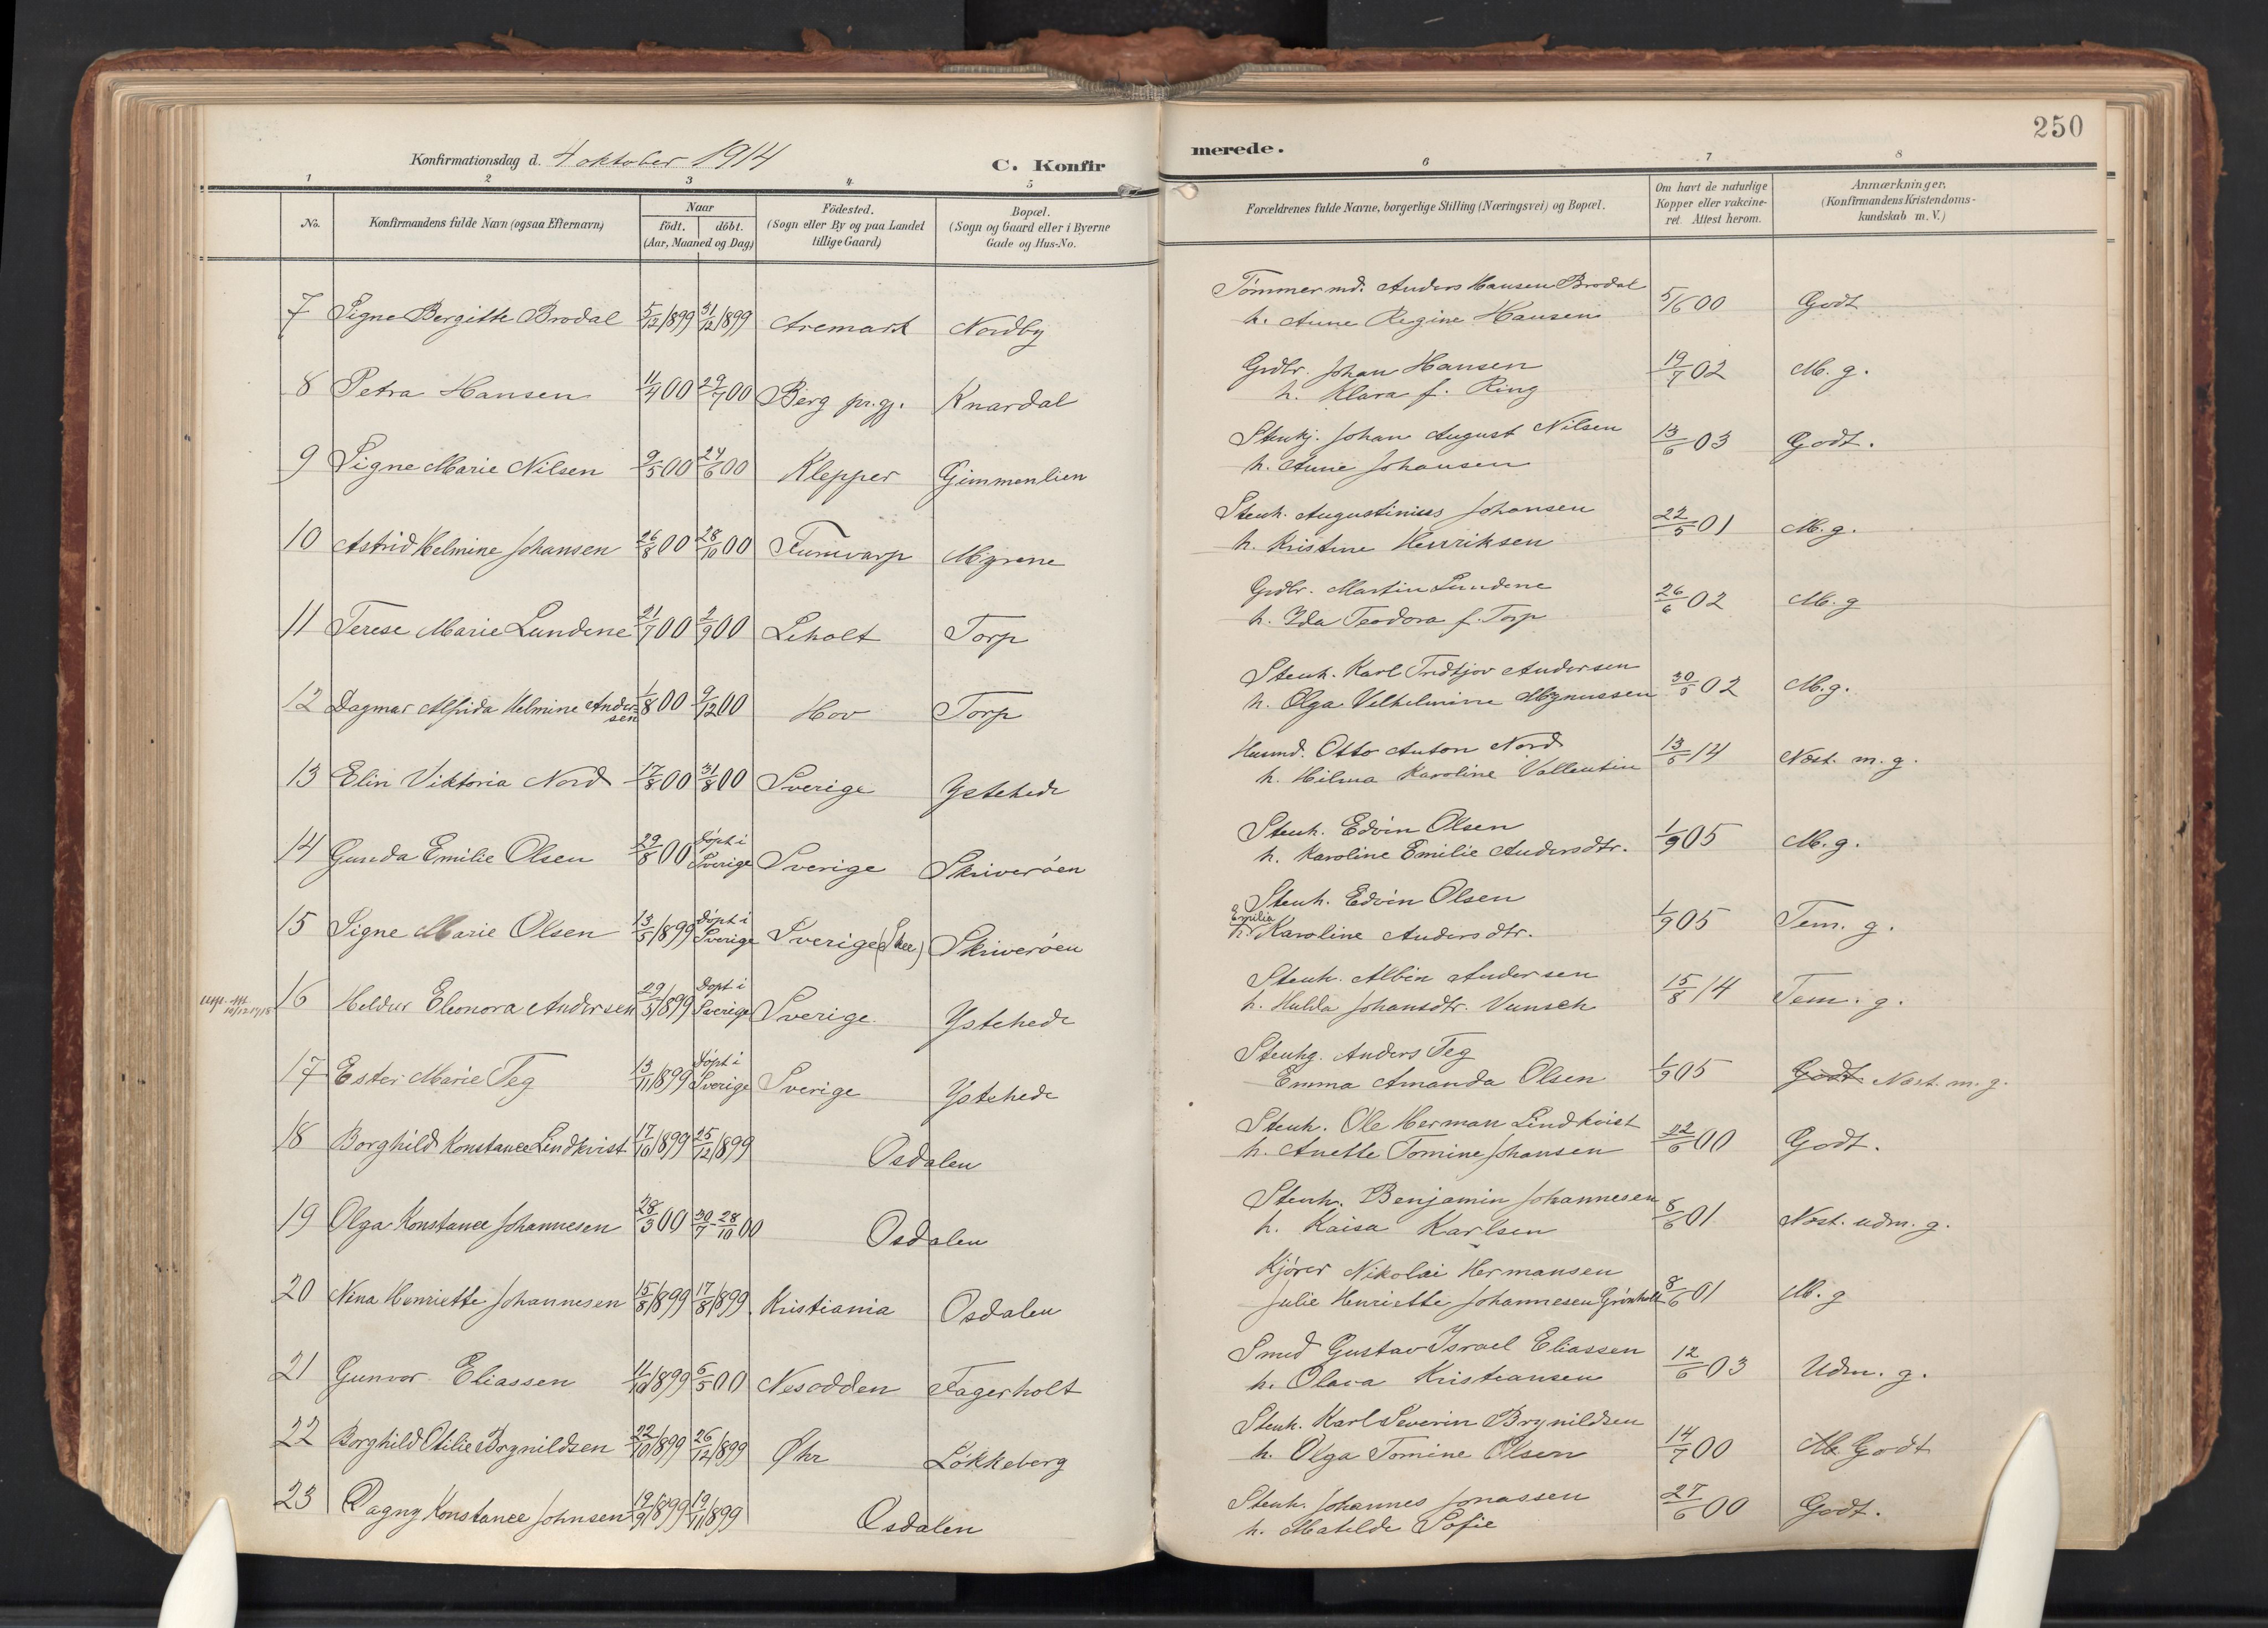 250
Konfirmationsdag d. 4 oktober 1914
C. Konfir
merede.
1 2 3 4 5 6 7 8
No. Konfirmandens fulde Navn (ogsaa Efternavn) Naar födt. döbt. (Aar, Maaned og Dag) Födested. (Sogn eller By og paa Landet tillige Gaard) Bopæl. (Sogn og Gaard eller i Byerne Gade og Hus-No. Forældrenes fulde Navne, borgerlige Stilling (Næringsvei) og Bopæl. Om havt de naturlige Kopper eller vakcineret. Attest herom. Anmærkninger. (Konfirmandens Kristendomskundskab m. V.)
7 Signe Bergitte Brodal 5/12 1899 31/12 1899 Aremark Nordby Tömmermd. Anders Hansen Brodal 5/6 00 Godt
h. Anne Regine Hansen
8 Petra Hansen 11/4 00 29/7 00 Berg pr.gj. Knardal Grdbr. Johan Hansen 19/7 02 M. g.
h. Klara f. Ring
9 Signe Marie Nilsen 9/5 00 24/6 00 Klepper Gimmenlien Stenhj. Johan August Nilsen 13/6 03 Godt.
h. Anne Johansen
10 Astrid Helmine Johansen 26/8 00 28/10 00 Myrene Stenh. Augustinius Johansen 22/5 01 M. g.
h. Kristine Henriksen
11 Terese Marie Lundene 21/7 00 2/9 00 Leholt Torp Grdbr. Martin Lundene 26/6 02 M. g
h. Ida Teodora f. Torp
12 Dagmar Alfrida Helmine Andersen 1/8 00 9/12 00 Hov Torp Stenh. Karl Fridtjov Andersen 30/5 02 M. g.
h. Olga Velhelmine Magnussen
13 Elin Viktoria Nord 17/8 00 31/8 00 Sverige Ystehede Husmd. Otto Anton Nord 13/6 14 Næst. m. g.
h. Hilma Karoline Vallentin
14 Gunda Emilie Olsen 29/8 00 döpt i Sverige Sverige Skriveröen Stenh. Edvin Olsen 1/9 05 M. g.
h. Karoline Emilie Andersdtr.
15 Signe Marie Olsen 13/5 1899 döpt i Sverige Sverige (Skee) Skriveröen Stenh. Edvin Olsen 1/9 05 Tem. g.
h. Emilia Karoline Andersdtr.
16 Heldur Eleonora Andersen 29/3 1899 Döpt i Sverige Sverige. Ystehede Stenh. Albin Andersen 15/8 14 Tem. g.
h. Hulda Johansdtr. Vunsch
17 Ester Marie Teg 13/11 1899 Döpt i Sverige Sverige Ystehede Stenhg. Anders Teg 1/9 05 Godt. Næst. m. g.
Emma Amanda Olsen
18 Borghild Konstance Lindkvist 17/10 1899 25/12 1899 Osdalen Stenh. Ole Herman Lindkvist 22/6 00 Godt.
h. Anette Tomine Johansen
19 Olga Konstance Johannesen 28/3 00 30/7 - 28/10 00 Osdalen Stenh. Benjamin Johannesen 8/6 01 Næst. udm. g.
h. Kaisa Karlsen
20 Nina Henriette Johannesen 15/8 1899 17/8 1899. Kristiania Osdalen Kjörer Nikolai Hermansen 8/6 01 M. g
Julie Henriette Johannesen Grönholt
21 Gunvor Eliassen 11/10 1899 6/5 00 Nesodden Fagerholt Smed Gustav Israel Eliassen 12/6 03 Udm. g.
h. Olava Kristiansen
22 Borghild Otilie Brynildsen 22/10 1899 26/12 1899 Øhr Lökkeberg Stenh. Karl Severin Brynildsen 14/7 00 M. Godt
h. Olga Tomine Olsen
23 Dagny Konstance Johnsen 19/9 1899 19/11 1899 Osdalen Stenh. Johannes Jonassen 27/6 00 Godt.
h. Matilde Sofie